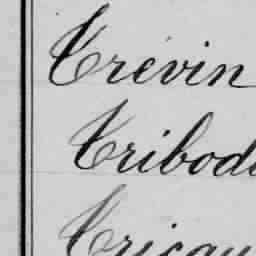 Trévin
Tribode
Tricau